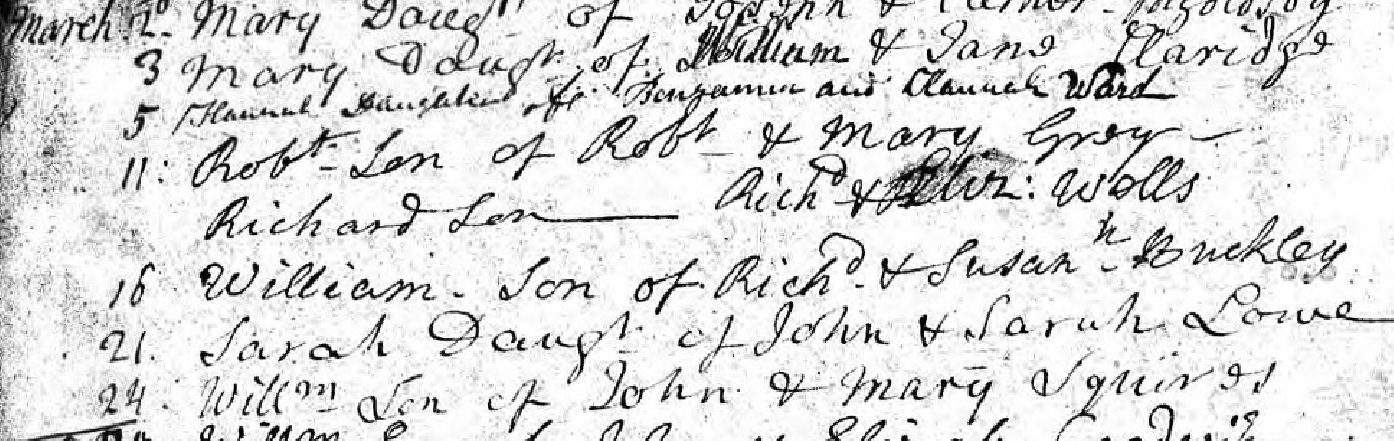 March 2d. Mary Daugtr of Joseph &
3 Mary Daugtr of William & Jane Claridge
5 Hannah Daughter of Benjamin and Hannah Ward
11: Robt Son of Robt & Mary Grey
Richard Son Richd & Eliz: Wells
16 William Son of Richd & Susanh Buckley
21. Sarah Daugtr of John & Sarah Lowe
24. Willm Son of John & Mary Squires
Willm